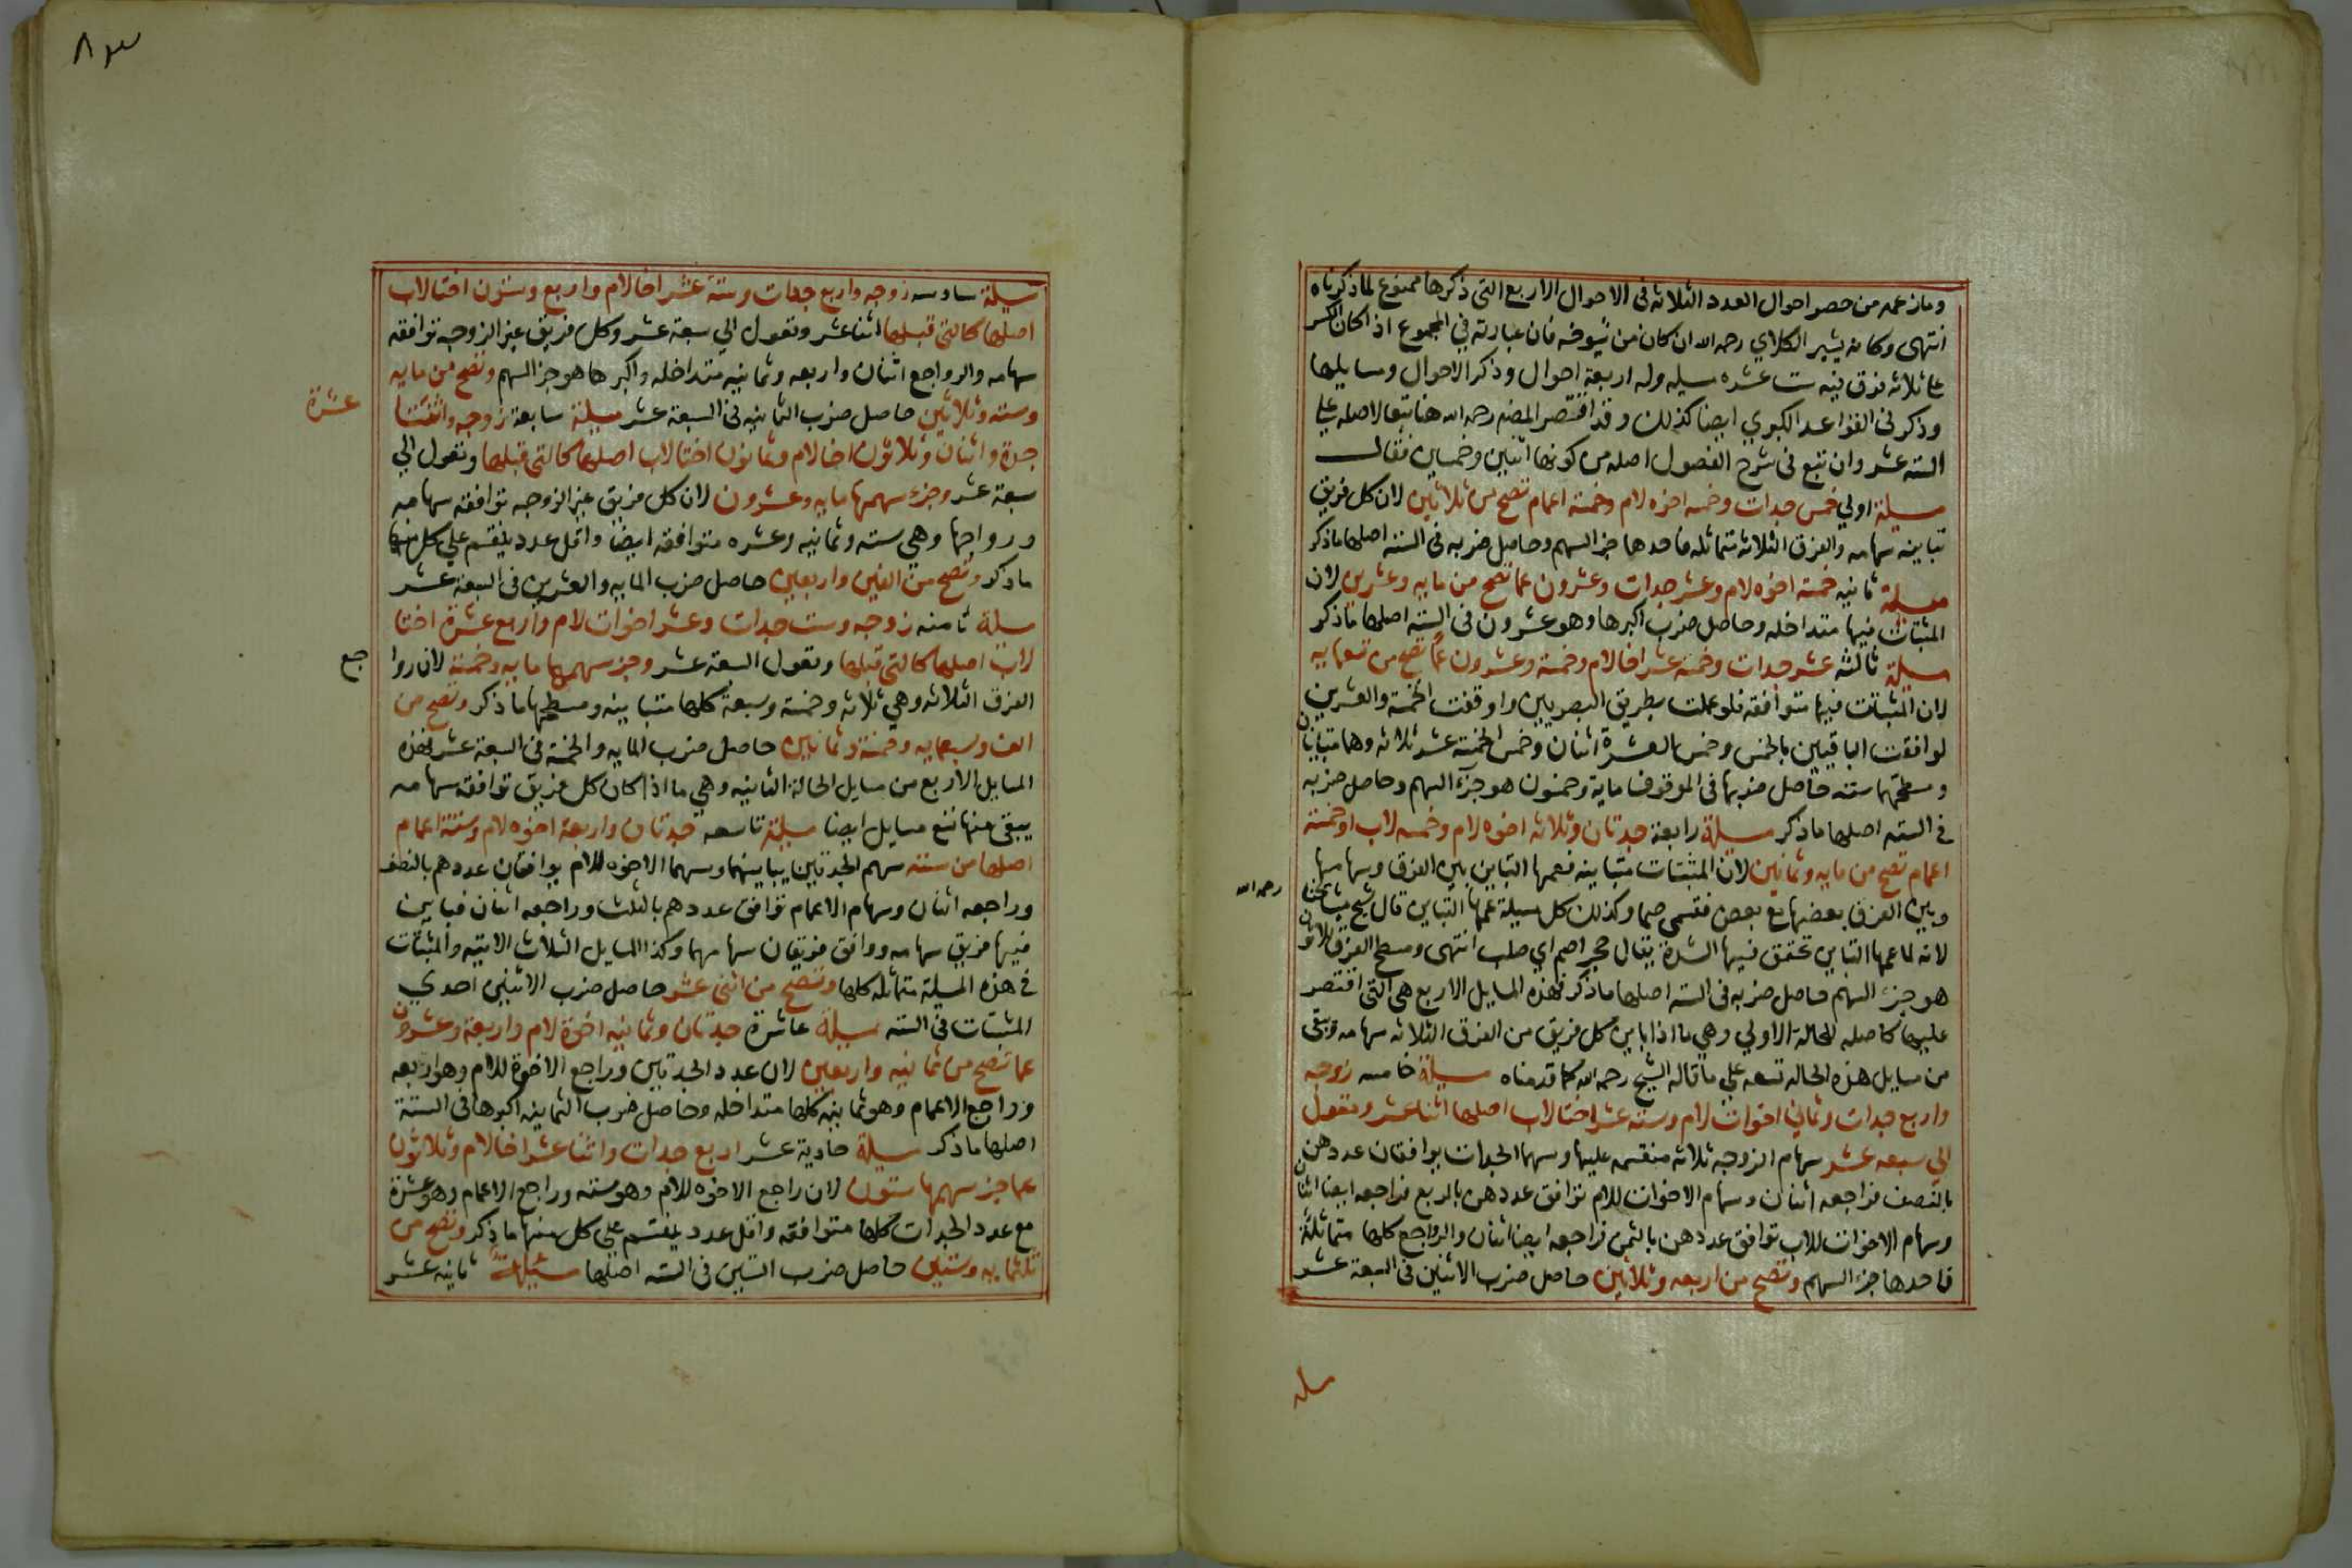 وما زعمه من حصر احوال العدد الثلاثه في الاحوال الاربع التي ذكرها ممنوع لما ذكرناه
انتهى وكانه يشير الكلاي رحمه الله ان كان من شيوخه فان عبارته في المجموع اذا كان الكسر
على ثلاثه فرق فيه ست عشره مسيله وله اربعة احوال وذكر الاحوال ومسايلها
وذكر في القواعد الكبري ايضا كذلك وقد اقتصر المص رحمه الله هنا تبعا لاصله على
السته عشر وان تبع في شرح الفصول اصله من كونها اثنين وخمسين فقال
مسيلة اولي خمس جدات وخمسه اخوه لام وخمسة اعمام تصح من ثلاثين لان كل فريق
تباينه سهامه والفرق الثلاثه متماثله فاحدها جز السهم وحاصل ضربه في السته اصلها ماذكر
مسيلة ثانيه خمسة اخوه لام وعشر جدات وعشرون عما تصح من مايه وعشرين لان
المثبتات فيها متداخله وحاصل ضرب اكبرها وهو عشرون في السته اصلها ماذكر
مسيلة ثالثه عشر جدات وخمسه عشر اخا لام وخمسة وعشرون عما تصح من تسعمايه
لان المثبتات فيها متوافقه فلو عملت بطريق البصريين واوقفت الخمسة والعشرين
لوافقت الباقيين بالخمس وخمس العشرة اثنان وخمس الخمسة عشر ثلاثه وهما متباينان
ومسطحهما سته حاصل ضربها في الموقوف ماية وخمسون هو جزء السهم وحاصل ضربه
في السته اصلها ماذكر مسيلة رابعة جدتان وثلاثه اخوه لام وخمسه لاب او خمسة
اعمام تصح من مايه وثمانين لان المثبتات متباينه فعمها التباين بين الفرق وسهامها
وبين الفرق بعضها مع بعض فتسمى صما وكذلك كل مسيلة عمها التباين قال شيخ مشايخنا
رحمه الله
لانه لما عمها التباين تحقق فيها الشدة يقال حجر اصم اي صلب انتهى ومسطح الفرق ثلاثون
هو جزء السهم حاصل ضربه في السته اصلها ماذكر فهذه المسايل الاربع هي التي اقتصر
عليها كاصله للحالة الاولي وهي ما اذا باين كل فريق من الفرق الثلاثه سهامه وبقى
من مسايل هذه الحاله تسعه علي ما قاله الشيخ رحمه الله كما قدمناه مسيلة خامسه زوجه
واربع جدات وثماني اخوات لام وسته عشر اختا لاب اصلها اثنا عشر وتعول
الي سبعه عشر سهام الزوجه ثلاثه منقسمه عليها وسهما الجدات يوافقان عددهن
بالنصف فراجعه اثنان وسهام الاخوات للام توافق عددهن بالربع فراجعه ايضا اثنان
وسهام الاخوات للاب توافق عددهن بالثمن فراجعه ايضا اثنان والرواجع كلها متماثلة
فاحدها جزء السهم وتصح من اربعه وثلاثين حاصل ضرب الاثنين في السبعة عشر
مسله
مسيلة سادسه زوجه واربع جدات وستة عشر اخا لام واربع وستون اختا لاب
اصلها كالتي قبلها اثنا عشر وتعول الي سبعة عشر وكل فريق غير الزوجه توافقه
سهامه والرواجع اثنان واربعه وثمانيه متداخله واكبرها هو جز السهم وتصح من مايه
وسته وثلاثين حاصل ضرب الثمانيه في السبعة عشر مسيلة سابعة زوجه واثنتا
عشرة
جدة واثنان وثلاثون اخا لام وثمانون اختا لاب اصلها كالتي قبلها وتعول الي
سبعة عشر وجزء سهمها مايه وعشرون لان كل فريق غير الزوجه توافقه سهامه
ورواجعها وهي سته وثمانيه وعشره متوافقه ايضا واقل عدد ينقسم علي كل منها
ماذكر وتصح من الفين واربعين حاصل ضرب المايه والعشرين في السبعة عشر
مسلة ثامنه زوجه وست جدات وعشر اخوات لام واربع عشرة اختا
لاب اصلها كالتي قبلها وتعول السبعة عشر وجز سهمها مايه وخمسة لان روا
جع
الفرق الثلاثه وهي ثلاثه وخمسة وسبعة كلها متباينه ومسطحها ماذكر وتصح من
الف وسبعمايه وخمسة وثمانين حاصل ضرب المايه والخمسة في السبعة عشر فهذه
المسايل الاربع من مسايل الحالة الثانيه وهي ما اذا كان كل فريق توافقه سهامه
يبقى منها تسع مسايل ايضا مسيلة تاسعه جدتان واربعة اخوه لام وستة اعمام
اصلها من سته سهم الجدتين يباينهما وسهما الاخوه للام يوافقان عددهم بالنصف
وراجعه اثنان وسهام الاعمام توافق عددهم بالثلث وراجعه اثنان فباين
فيها فريق سهامه ووافق فريقان سهامهما وكذا المسايل الثلاث الاتيه والمثبتات
في هذه المسيلة متماثله كلها وتصح من اثني عشر حاصل ضرب الاثنين احدي
المثبتات في السته مسيلة عاشرة جدتان وثمانيه اخوة لام واربعة وعشرون
عما تصح من ثمانيه واربعين لان عدد الجدتين وراجع الاخوة للام وهو اربعه
وراجع الاعمام وهو ثمانيه كلها متداخله وحاصل ضرب الثمانيه اكبرها في الستة
اصلها ماذكر مسيلة حادية عشر اربع جدات واثنا عشر اخا لام وثلاثون
عما جز سهمها ستون لان راجع الاخوه للام وهو سته وراجع الاعمام وهو عشرة
مع عدد الجدات كلها متوافقه واقل عدد ينقسم على كل منها ماذكر وتصح من
ثلثمايه وستين حاصل ضرب الستين في السته اصلها مسيلة ثانيه عشر